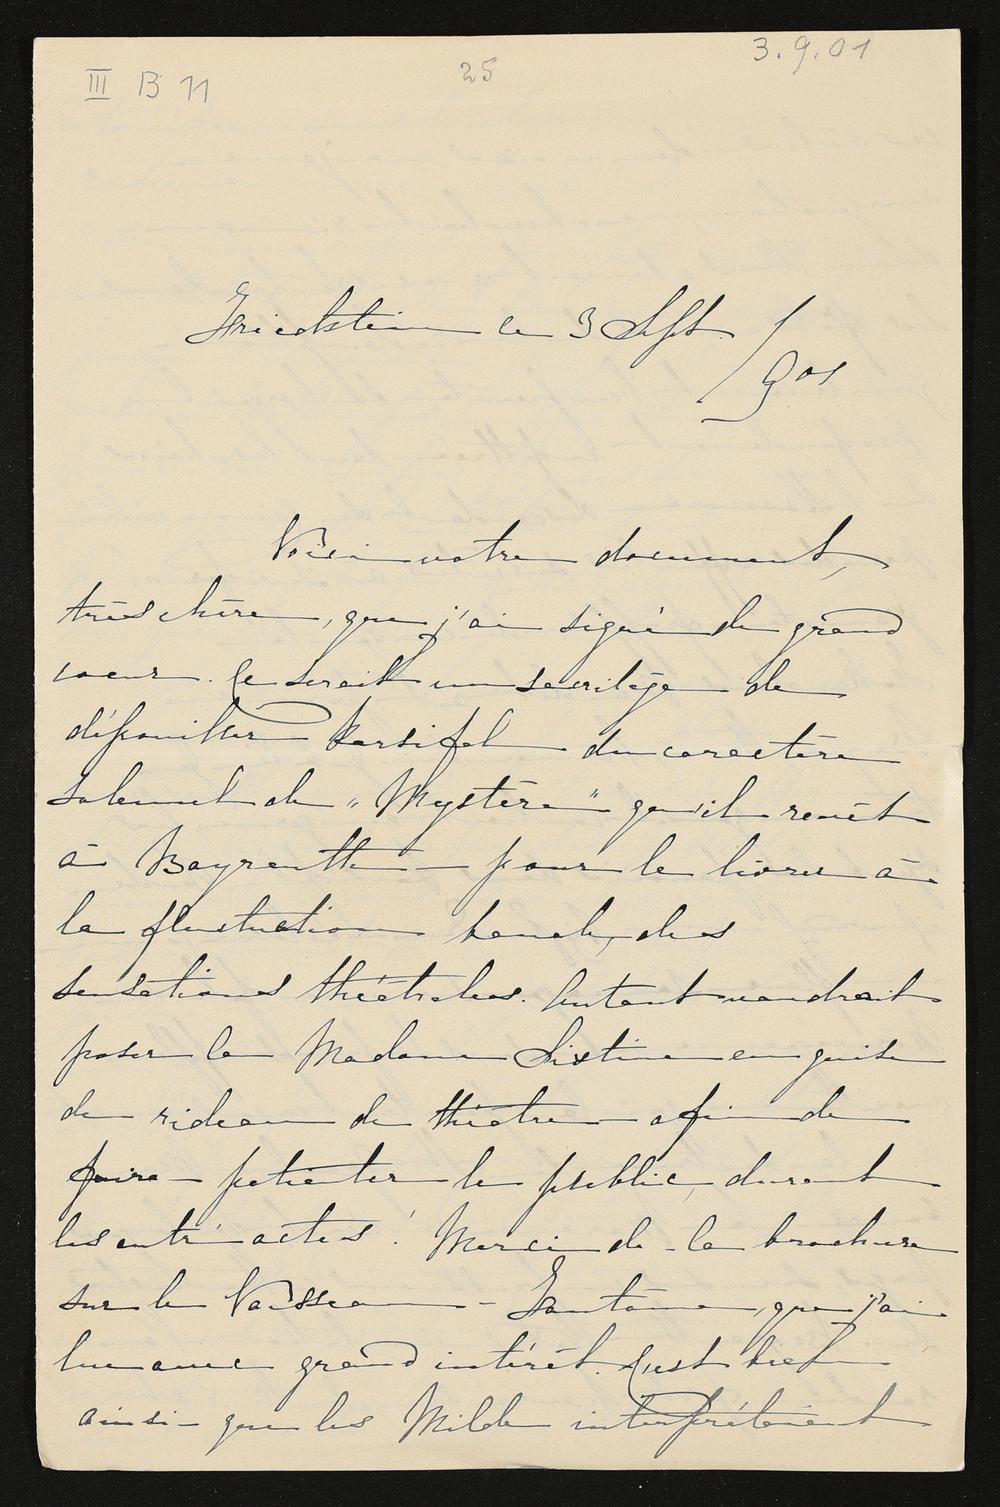 III B 11
25
3.9.01
Friedstein le 3 Sept. /901
Voici votre document,
très chère, que j'ai signé de grand
coeur. Ce serait un sacrilège de
dépouiller Parsifal du caractère
solennel de „Mystère" qu'il revêt
à Bayreuth — pour le livrer à
la fluctuation banale des
sensations théâtrales. Autant vaudrait
poser la Madone Sixtine en guise
de rideau de théâtre — afin de
faire patienter le public, durant
les entr'actes! Merci de la brochure
sur le Vaisseau-Fantôme, que j'ai
lue avec grand intérêt. C'est bien
ainsi que les Milde interprétaient